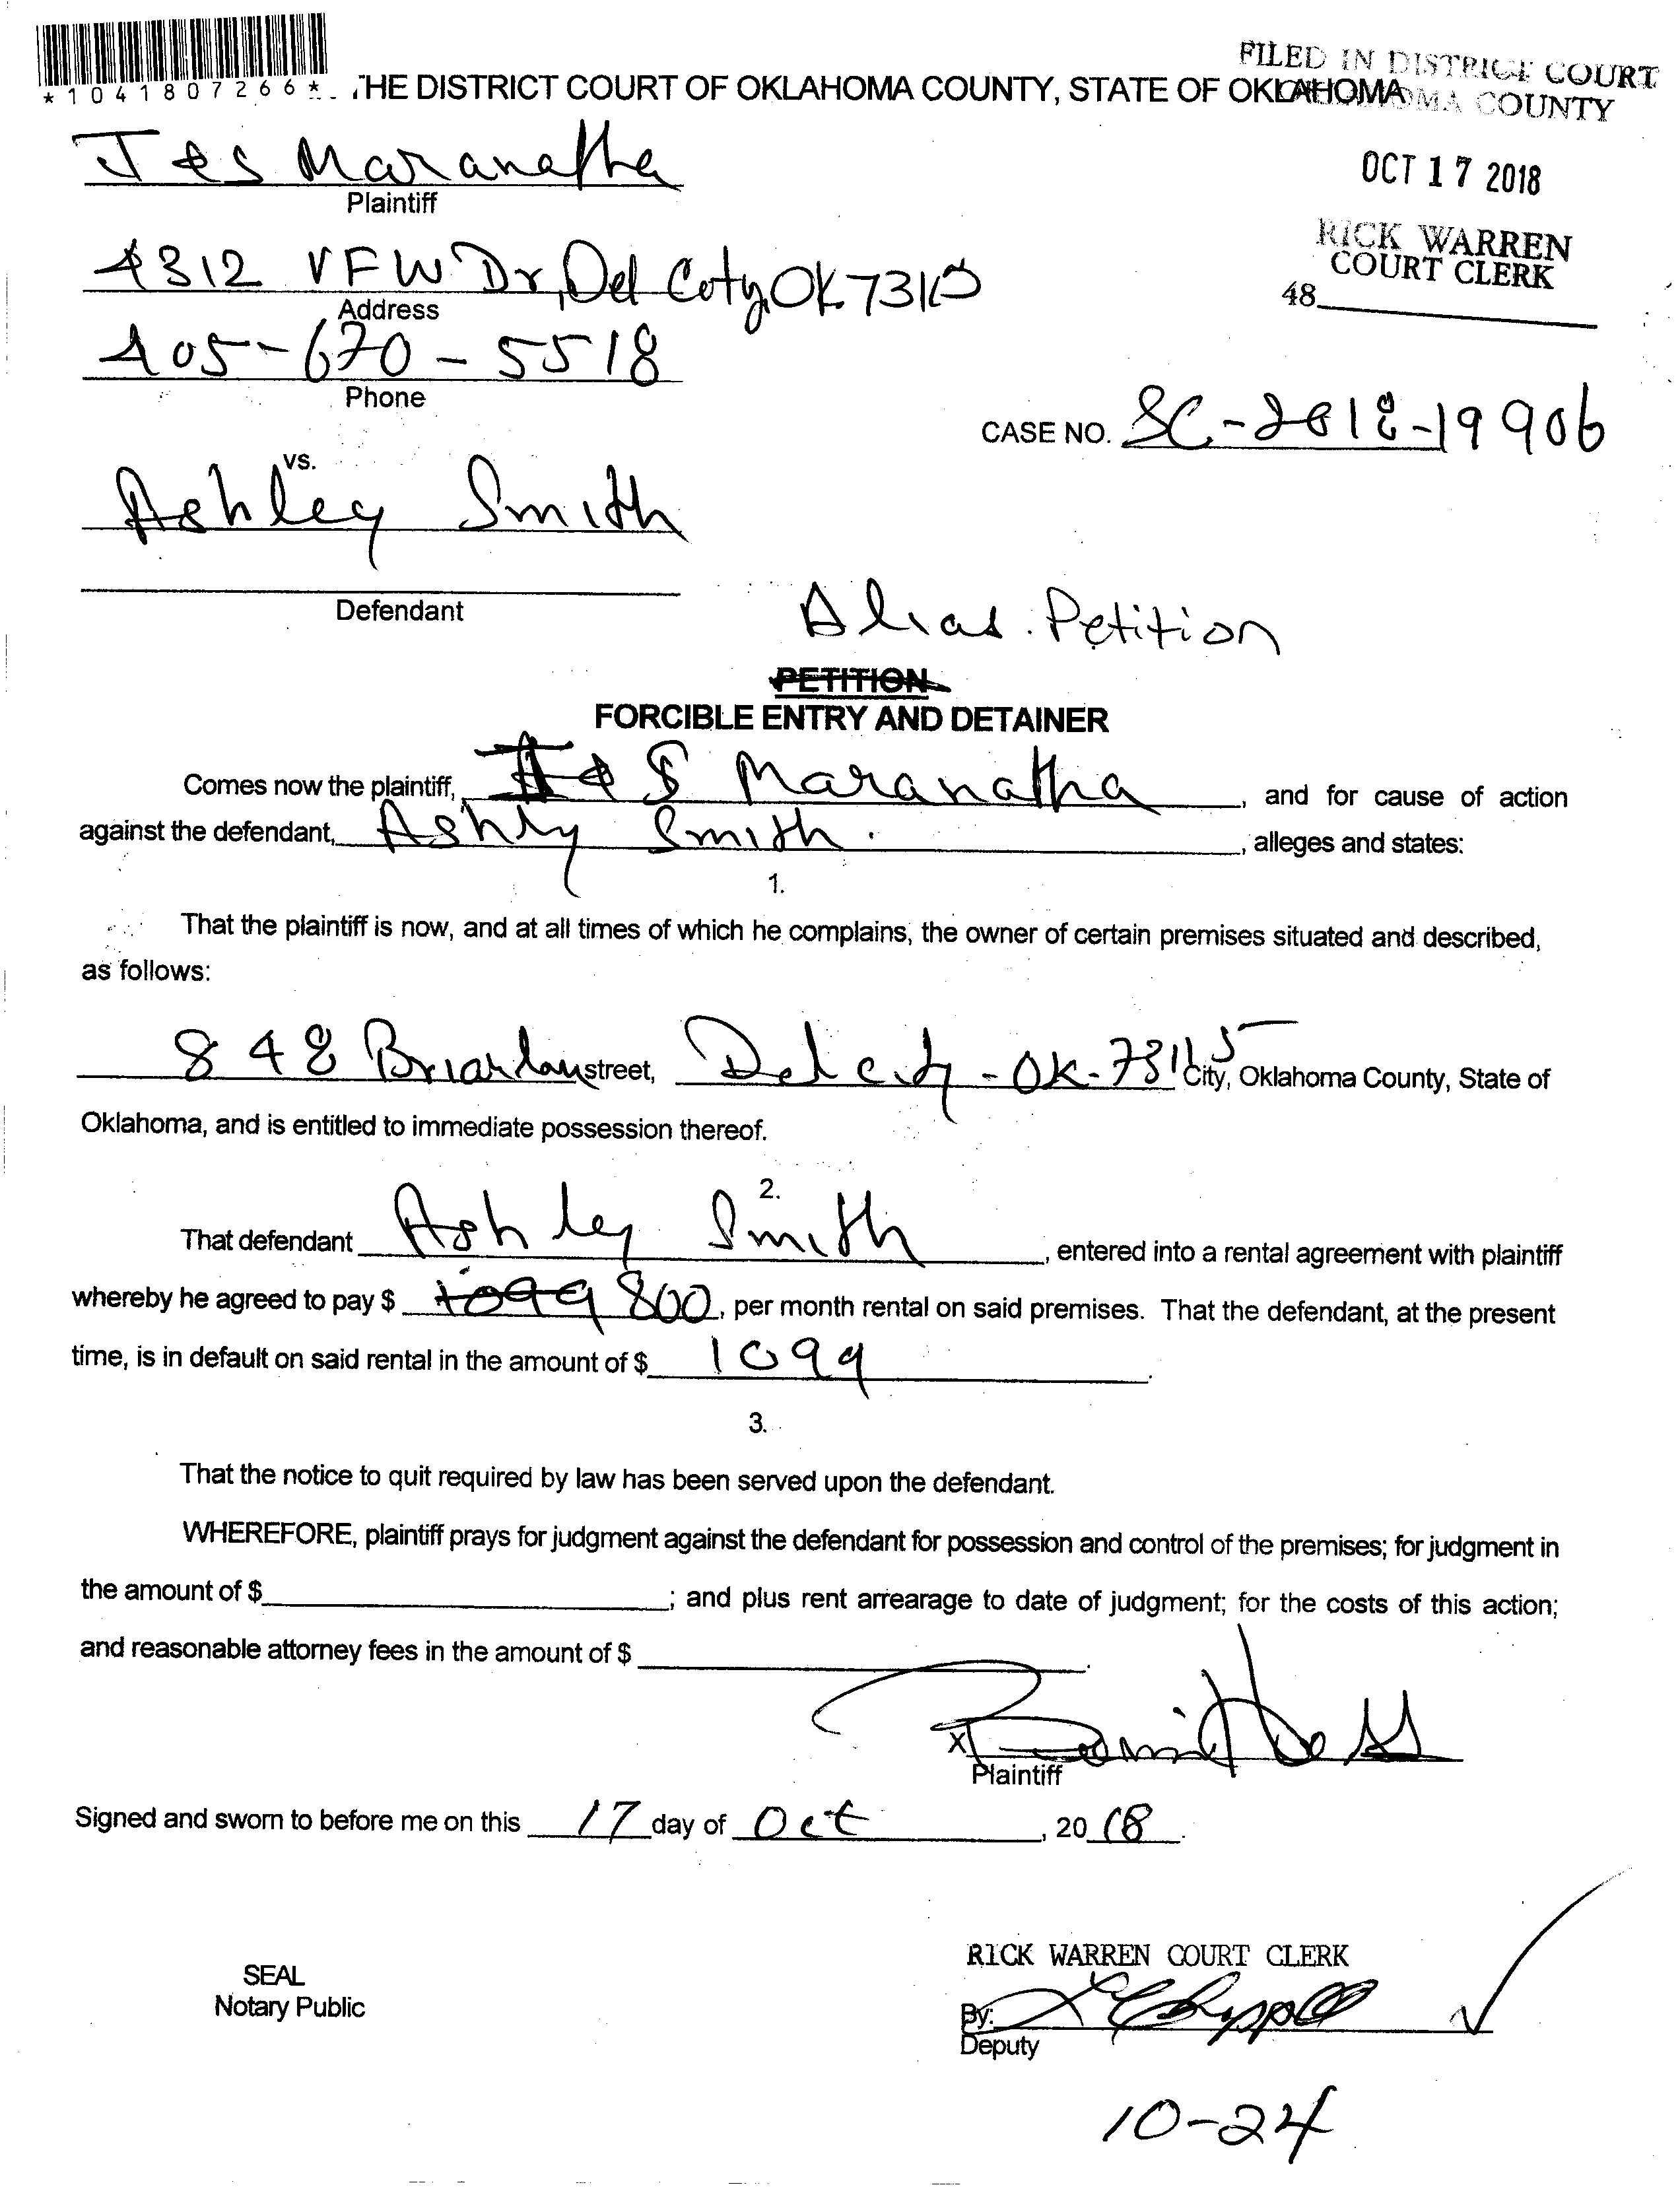 FILED IN DISTRICT COURT
OKLAHOMA COUNTY
*1041807266*
THE DISTRICT COURT OF OKLAHOMA COUNTY, STATE OF OKLAHOMA
J & S Maranatha
OCT 17 2018
Plaintiff
RICK WARREN
COURT CLERK
4312 VFW Dr, Del Coty, OK 73115
48
Address
405-670-5518
Phone
CASE NO. SC-2018-19906
vs.
Ashley Smith
Defendant
Alias Petition
PETITION
FORCIBLE ENTRY AND DETAINER
Comes now the plaintiff, J & S Maranatha, and for cause of action
against the defendant, Ashly Smith., alleges and states:
1.
That the plaintiff is now, and at all times of which he complains, the owner of certain premises situated and described,
as follows:
848 street, Del city - OK - 73115 City, Oklahoma County, State of
Oklahoma, and is entitled to immediate possession thereof.
2.
That defendant Ashley Smith, entered into a rental agreement with plaintiff
whereby he agreed to pay $ 1099 800, per month rental on said premises. That the defendant, at the present
time, is in default on said rental in the amount of $ 1099.
3.
That the notice to quit required by law has been served upon the defendant.
WHEREFORE, plaintiff prays for judgment against the defendant for possession and control of the premises; for judgment in
the amount of $; and plus rent arrearage to date of judgment; for the costs of this action;
and reasonable attorney fees in the amount of $.
X
Plaintiff
Signed and sworn to before me on this 17 day of Oct, 2018.
RICK WARREN COURT CLERK
SEAL
Notary Public
By:
Deputy
10-24